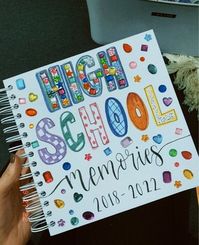 HIGH
SCHOOL
memories
2018-2022